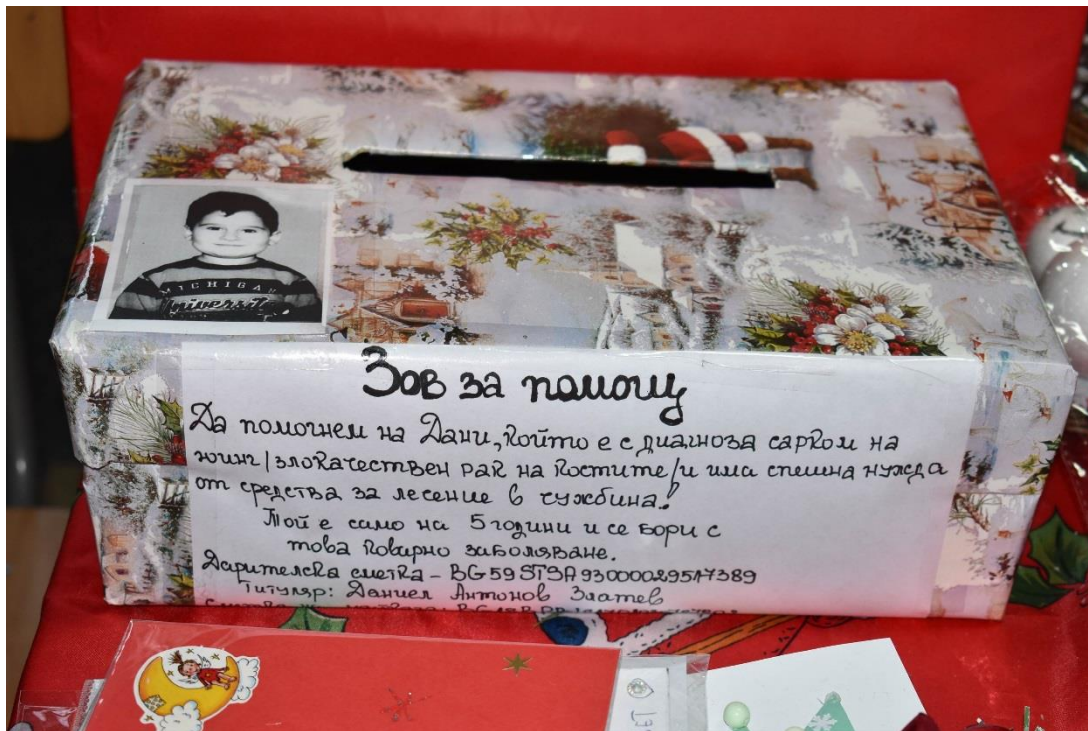 MICHIGAN
University
Зов за помощ
Да помогнем на Дани, който е с диагноза сарком на
юинг /злокачествен рак на костите/ и има спешна нужда
от средства за лечение в чужбина!
Той е само на 5 години и се бори с
това коварно заболяване.
Дарителска сметка - BG59STSA93000029517389
Титуляр: Даниел Антонов Златев